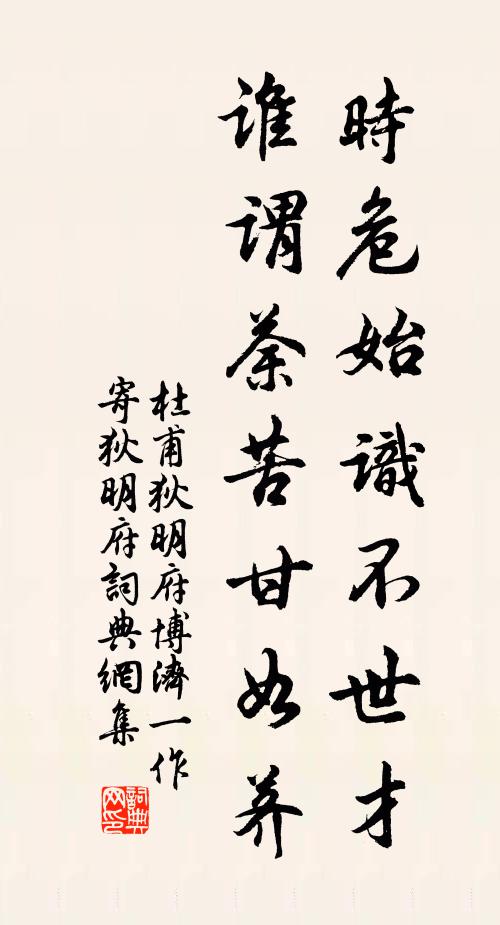 時危始識不世才
誰謂荼苦甘如荠
杜甫狄明府博濟一作
寄狄明府詞典網集
詞典网印